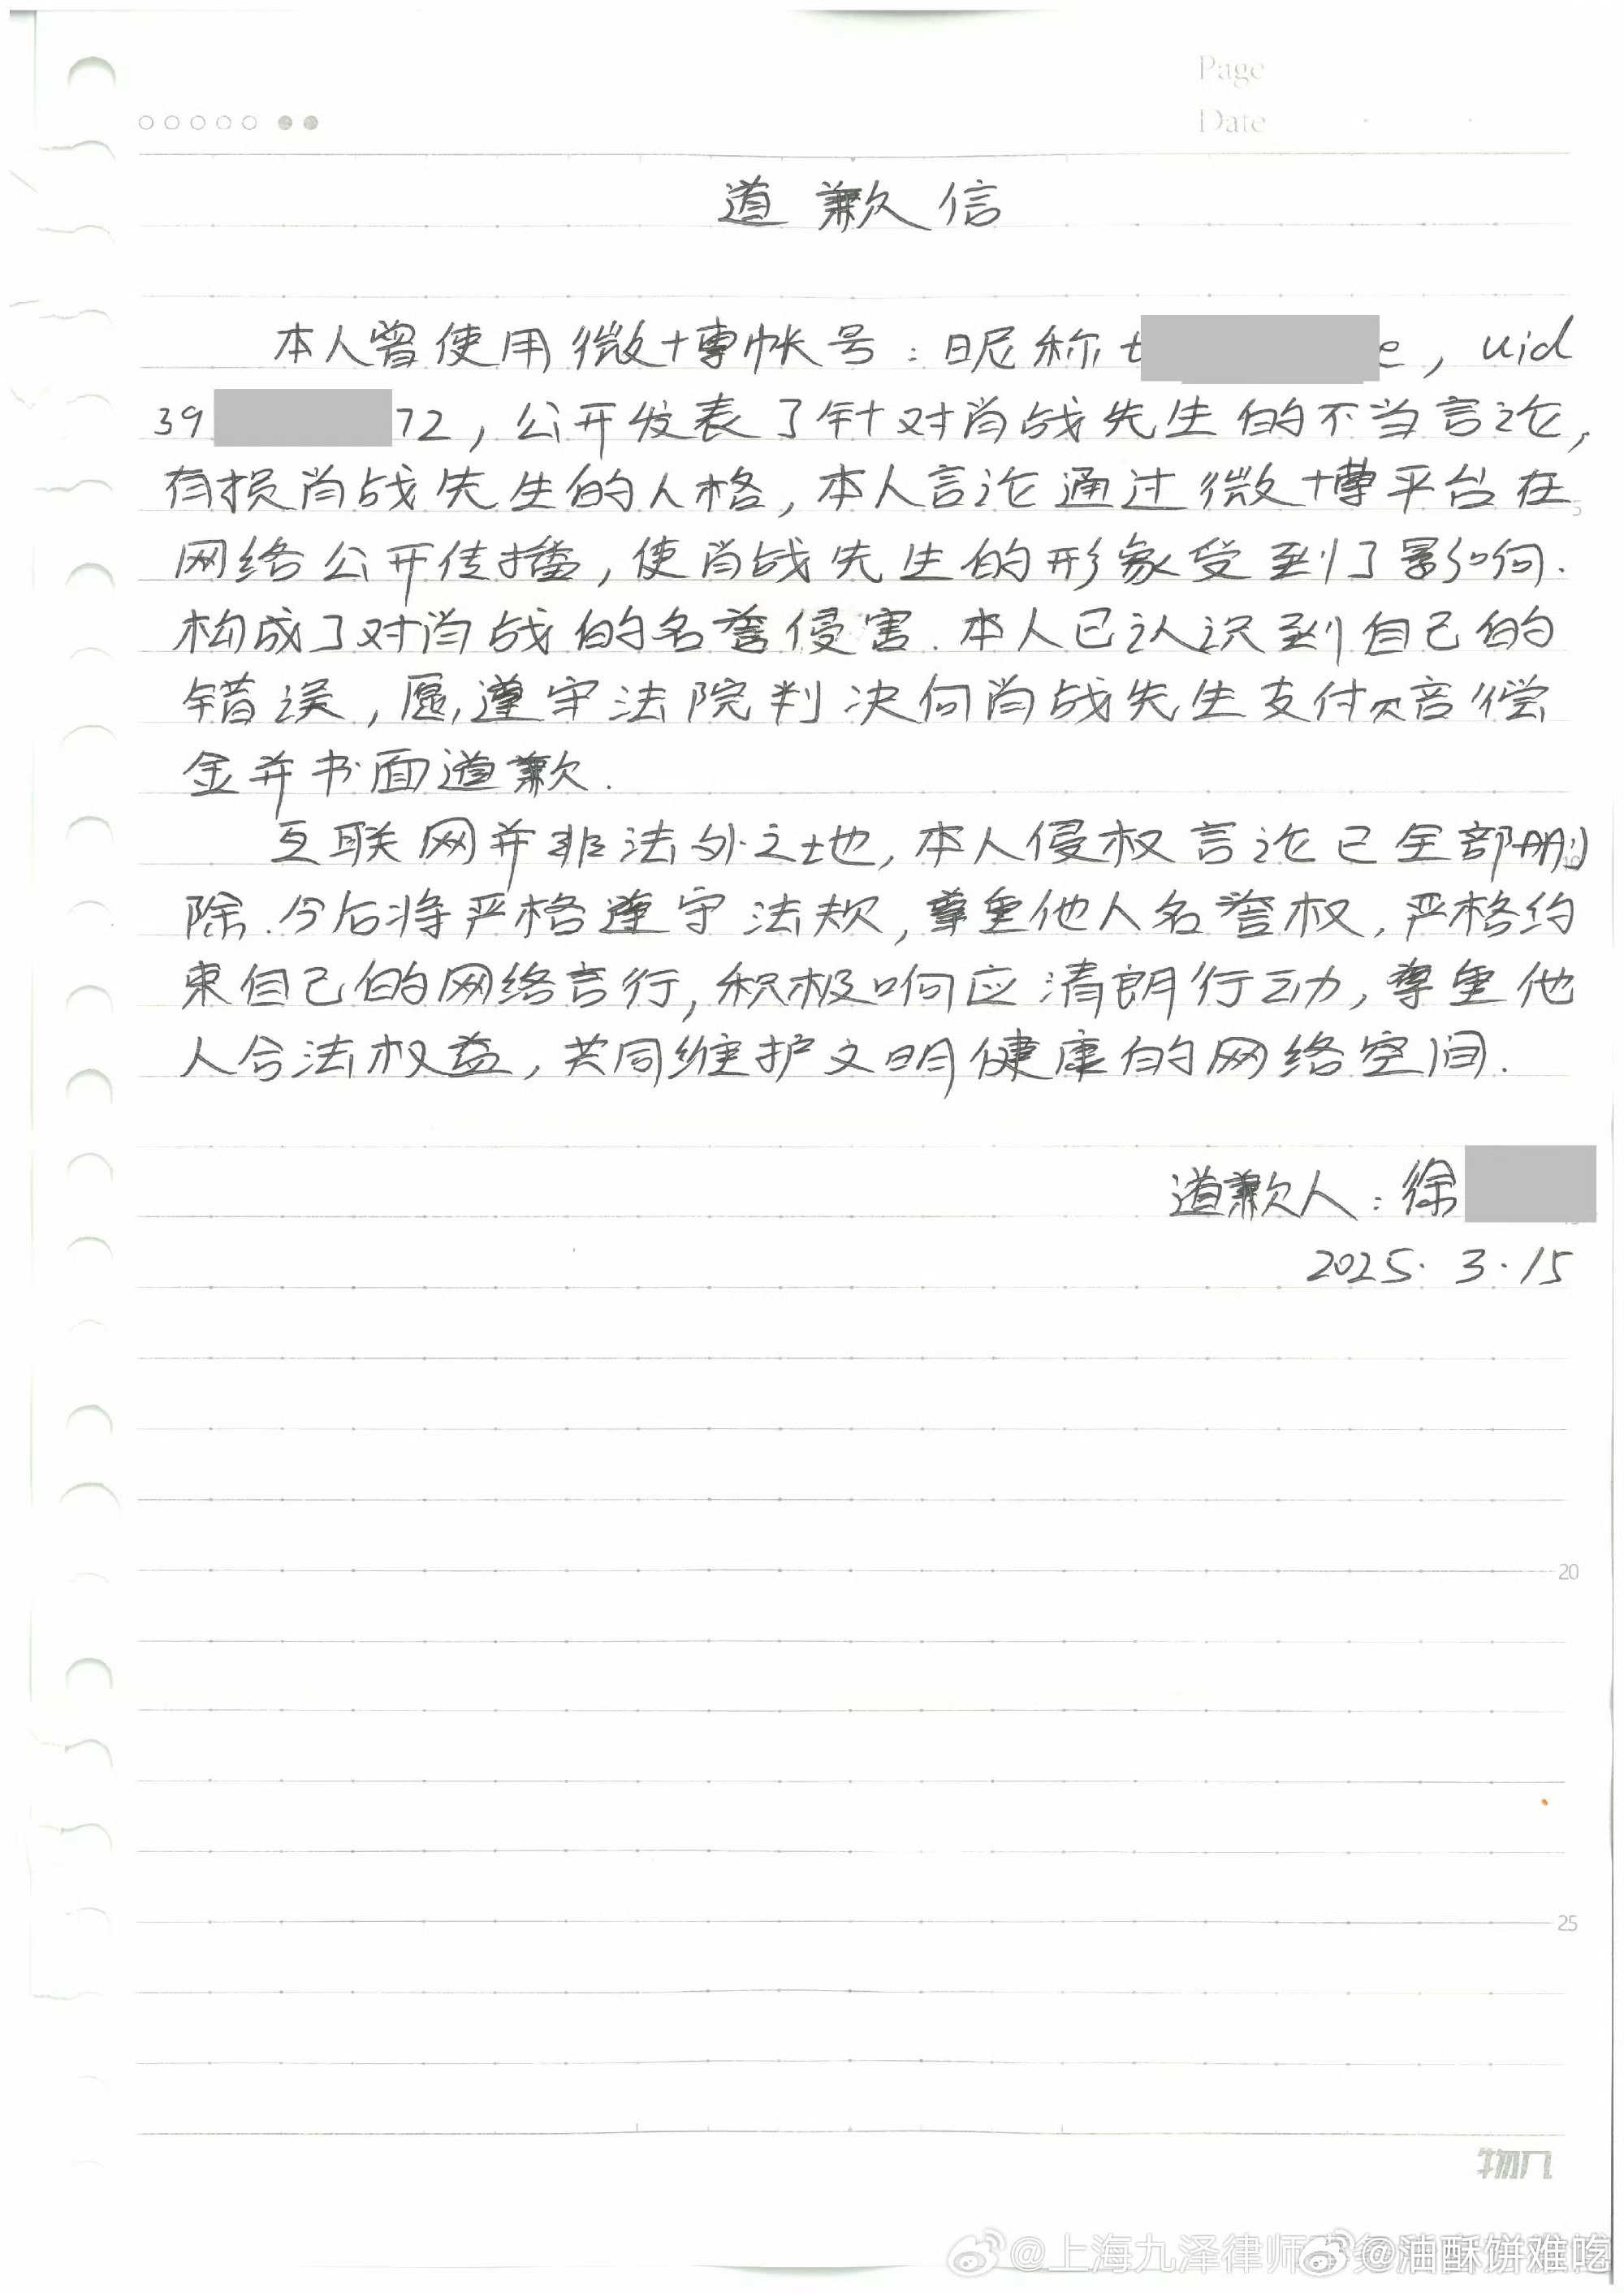 Page
Date
道歉信
本人曾使用微博帐号：昵称t e，uid
39 72，公开发表了针对肖战先生的不当言论，
有损肖战先生的人格，本人言论通过微博平台在
网络公开传播，使肖战先生的形象受到了影响.
构成了对肖战的名誉侵害.本人已认识到自己的
错误，愿遵守法院判决向肖战先生支付赔偿
金并书面道歉.
互联网并非法外之地，本人侵权言论已全部删
除.今后将严格遵守法规，尊重他人名誉权，严格约
束自己的网络言行，积极响应清朗行动，尊重他
人合法权益，共同维护文明健康的网络空间.
道歉人：徐
2025.3.15
5
10
20
25
物几
@上海九泽律师
@油酥饼难吃